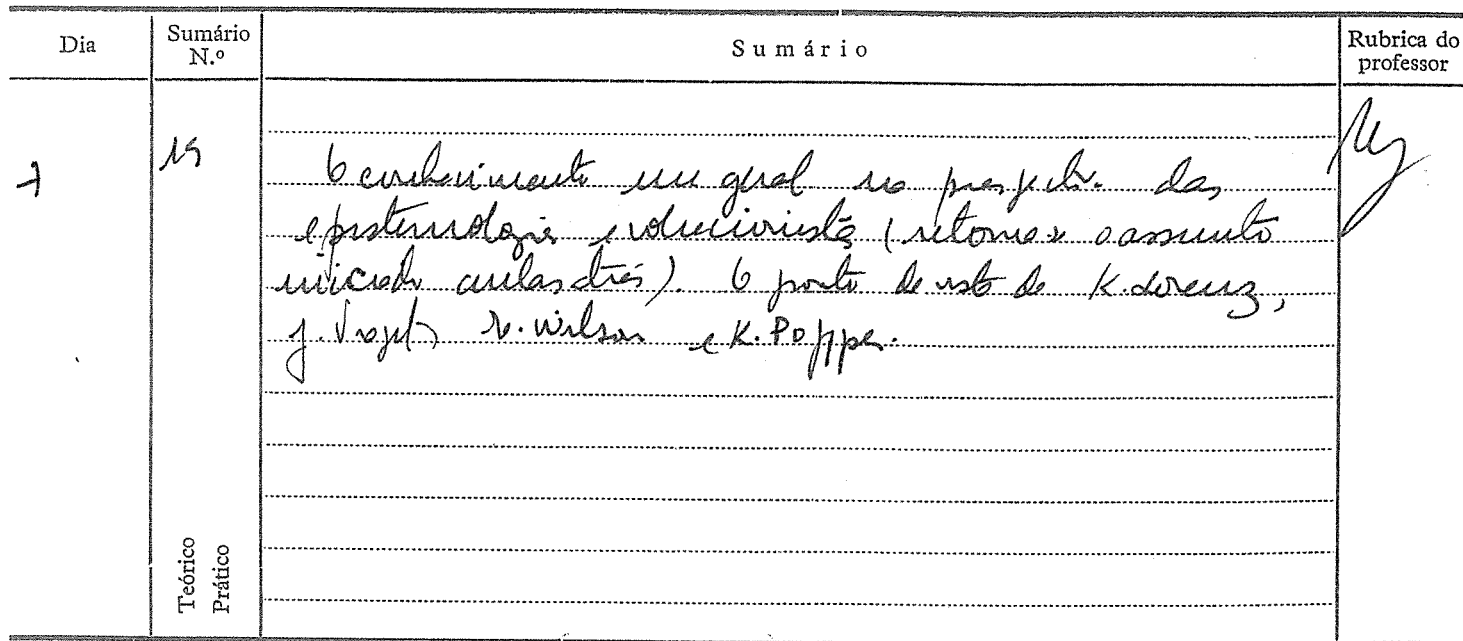 Dia
Sumário N.º
Sumário
Rubrica do professor
7
O conhecimento em geral na das
epistemologia evolucionista (retoma-se o assunto
iniciado aulas atrás). O ponto de vista de K. Lorenz,
Wilson e K. Popper.
Teórico
Prático